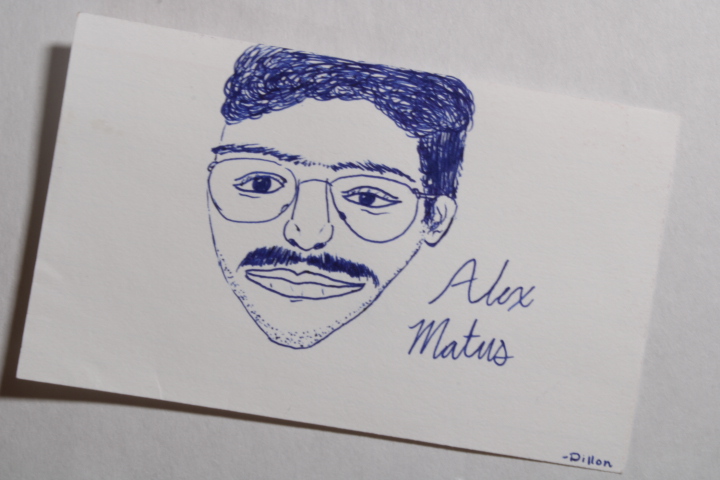 Alex
Matus
-Dillon